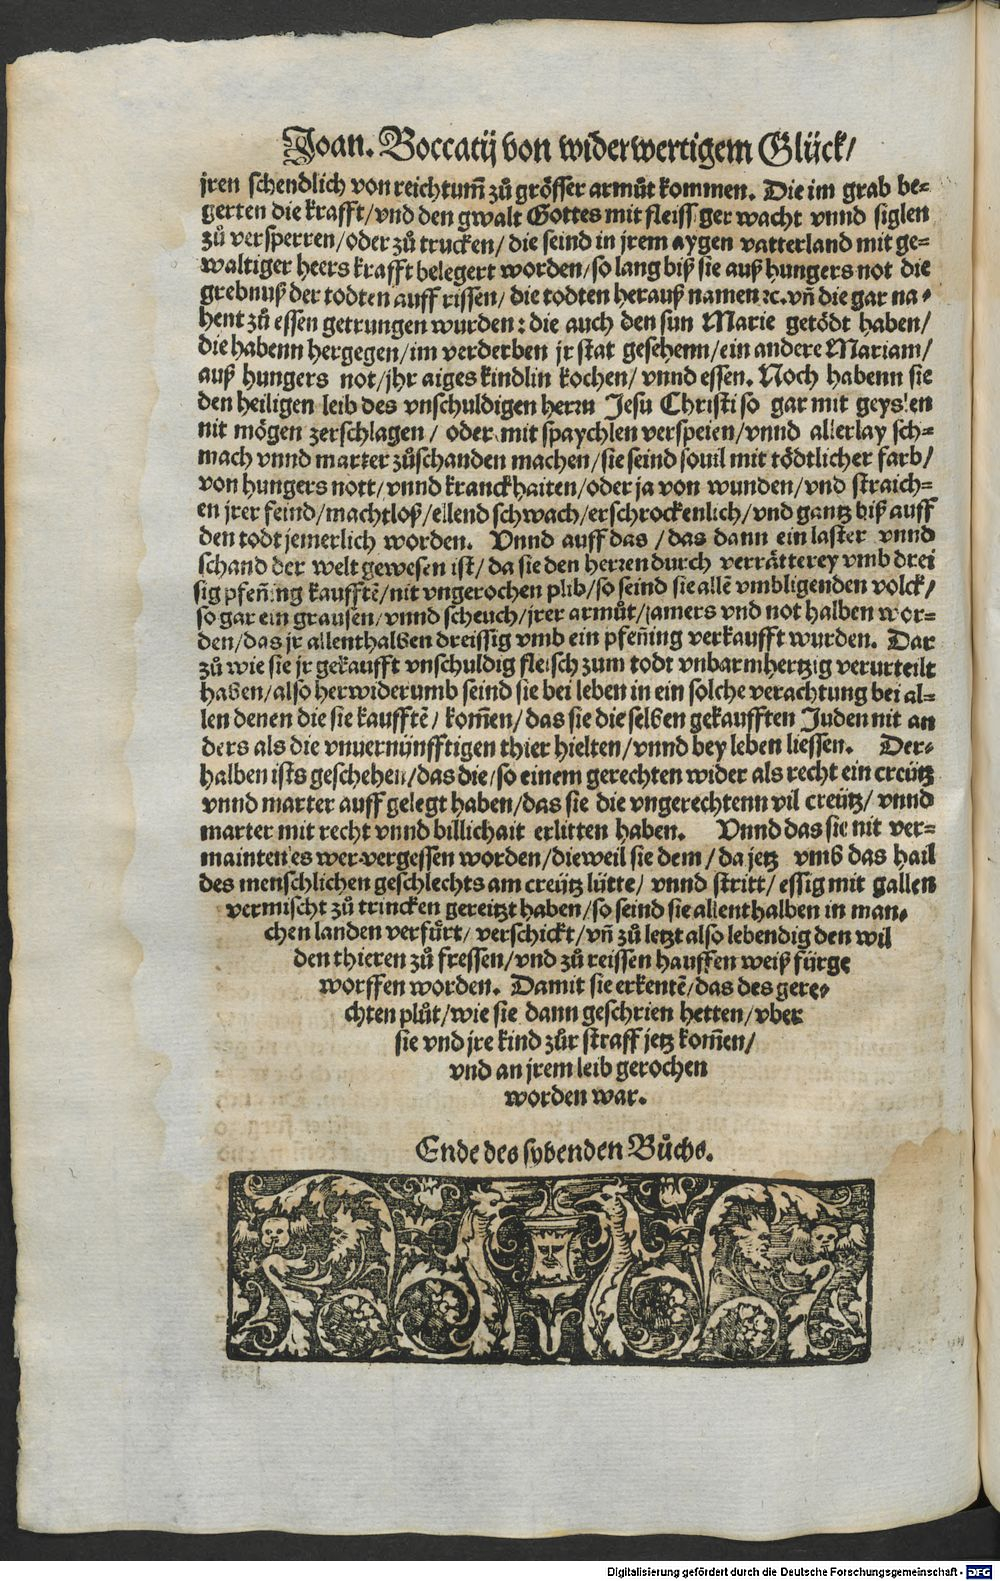 Joan. Boccatij von widerwertigem Glück/
jren schendlich von reichtum̃ zů grösser armůt kommen. Die im grab be⸗
gerten die krafft/vnd den gwalt Gottes mit fleissiger wacht vnnd siglen
zů versperren/oder zů trucken/die seind in jrem aygen vatterland mit ge⸗
waltiger heers krafft belegert worden/so lang biß sie auß hungers not die
grebnuß der todten auff rissen/die todten herauß namen ꝛc. vñ die gar na⸗
hent zů essen getrungen wurden: die auch den sun Marie getödt haben/
die habenn hergegen/im verderben jr stat gesehenn/ein andere Mariam/
auß hungers not/jhr aiges kindlin kochen/vnnd essen. Noch habenn sie
den heiligen leib des vnschuldigen herꝛn Jesu Christi so gar mit geyslen
nit mögen zerschlagen/oder mit spaychlen verspeien/vnnd allerlay sch⸗
mach vnnd marter zůschanden machen/sie seind souil mit tödtlicher farb/
von hungers nott/vnnd kranckhaiten/oder ja von wunden/vnd straich⸗
en jrer feind/machtloß/ellend schwach/erschrockenlich/vnd gantz biß auff
den todt jemerlich worden. Vnnd auff das/das dann ein laster vnnd
schand der welt gewesen ist/da sie den herꝛen durch verrätterey vmb drei
sig pfenning kaufftẽ/nit vngerochen plib/so seind sie allẽ vmbligenden volck/
so gar ein grausen/vnnd scheuch/jrer armůt/jamers vnd not halben wor⸗
den/das jr allenthalben dreissig vmb ein pfeñing verkaufft wurden. Dar
zů wie sie jr gekaufft vnschuldig fleisch zum todt vnbarmhertzig verurteilt
haben/also herwiderumb seind sie bei leben in ein solche verachtung bei al⸗
len denen die sie kaufftẽ/kom̃en/das sie die selben gekaufften Juden nit an
ders als die vnuernünfftigen thier hielten/vnnd bey leben liessen. Der⸗
halben ists geschehen/das die/so einem gerechten wider als recht ein creütz
vnnd marter auff gelegt haben/das sie die vngerechtenn vil creütz/vnnd
marter mit recht vnnd billichait erlitten haben. Vnnd das sie nit ver⸗
mainten es wer vergessen worden/dieweil sie dem/da jetz vmb das hail
des menschlichen geschlechts am creütz lütte/vnnd stritt/essig mit gallen
vermischt zů trincken gereitzt haben/so seind sie allenthalben in man⸗
chen landen verfůrt/verschickt/vñ zů letzt also lebendig den wil
den thieren zů fressen/vnd zů reissen hauffen weiß fürge
worffen worden. Damit sie erkentẽ/das des gere⸗
chten plůt/wie sie dann geschrien hetten/vber
sie vnd jre kind zůr straff jetz kom̃en/
vnd an jrem leib gerochen
worden war.
Ende des sybenden Bůchs.
Digitalisierung gefördert durch die Deutsche Forschungsgemeinschaft - DFG